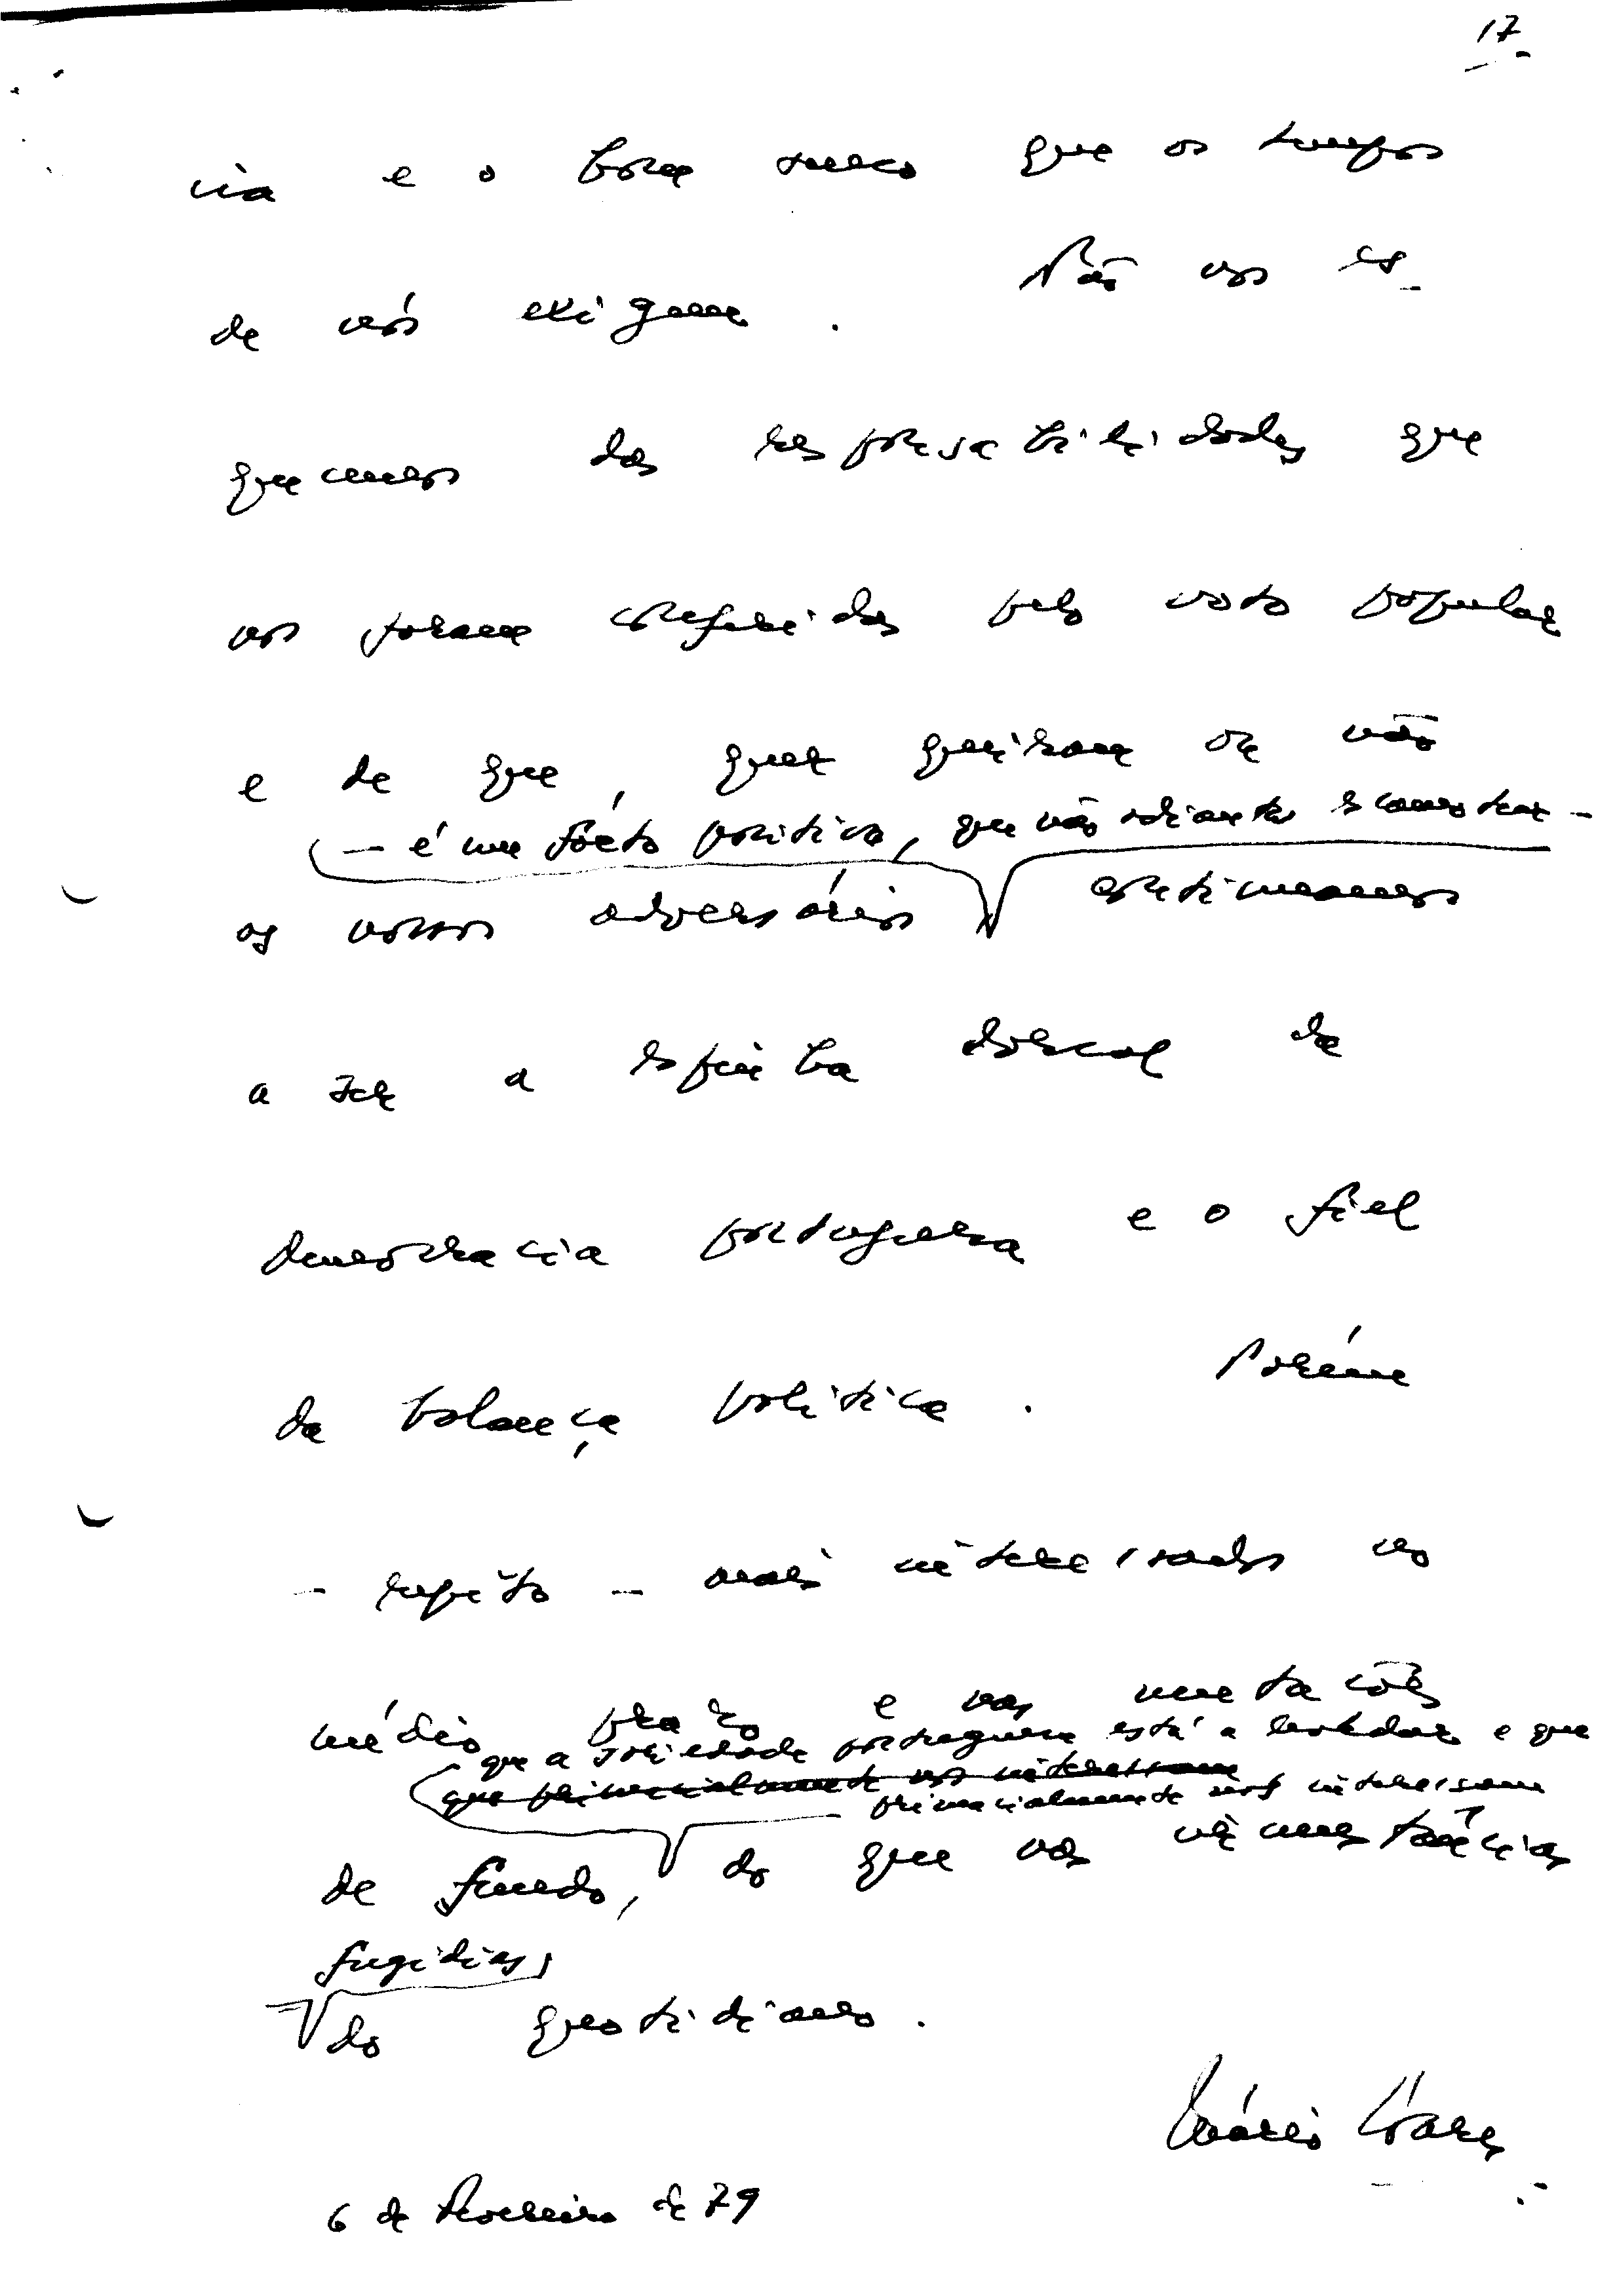 17
cia e o bom senso que os tempos
de nós exigem. Não nos es-
quecemos das responsabilidades que
nos foram conferidas pelo voto popular
e de que, quer queiram ou não
— é um facto político, que não adianta escamotear —
os nossos adversários continuamos
a ser a espinha dorsal da
democracia portuguesa e o fiel
da balança política. Porém
– repito – mais interessados no
médio prazo e nas mutações
que a sociedade portuguesa está a and e que
que primacialmente nos interessam
primacialmente nos interessam
de fundo, do que nas circunstâncias
fugidias,
do quotidiano.
Mário Soares
6 de Fevereiro de 79